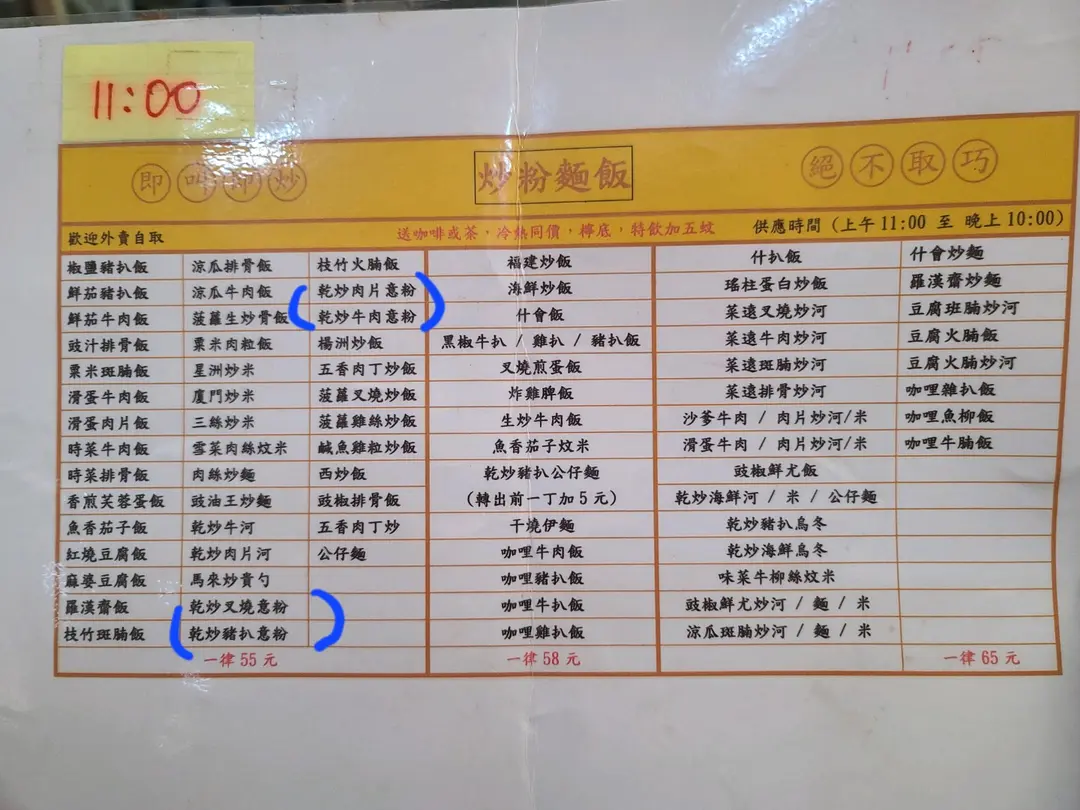 11:00
即叫即炒 炒粉麵飯 絕不取巧
歡迎外賣自取 送咖啡或茶，冷熱同價，檸底，特飲加五蚊 供應時間 (上午 11:00 至 晚上 10:00)
椒鹽豬扒飯 涼瓜排骨飯 枝竹火腩飯 福建炒飯 什扒飯 什會炒麵
鮮茄豬扒飯 涼瓜牛肉飯 乾炒肉片意粉 海鮮炒飯 瑤柱蛋白炒飯 羅漢齋炒麵
鮮茄牛肉飯 菠蘿生炒骨飯 乾炒牛肉意粉 什會飯 菜遠叉燒炒河 豆腐班腩炒河
豉汁排骨飯 粟米肉粒飯 楊洲炒飯 黑椒牛扒 / 雞扒 / 豬扒飯 菜遠牛肉炒河 豆腐火腩飯
粟米斑腩飯 星洲炒米 五香肉丁炒飯 叉燒煎蛋飯 菜遠斑腩炒河 豆腐火腩炒河
滑蛋牛肉飯 廈門炒米 菠蘿叉燒炒飯 炸雞脾飯 菜遠排骨炒河 咖哩雜扒飯
滑蛋肉片飯 三絲炒米 菠蘿雞絲炒飯 生炒牛肉飯 沙爹牛肉 / 肉片炒河/米 咖哩魚柳飯
時菜牛肉飯 雪菜肉絲炆米 鹹魚雞粒炒飯 魚香茄子炆米 滑蛋牛肉 / 肉片炒河/米 咖哩牛腩飯
時菜排骨飯 肉絲炒麵 西炒飯 乾炒豬扒公仔麵 豉椒鮮尤飯
香煎芙蓉蛋飯 豉油王炒麵 豉椒排骨飯 (轉出前一丁加 5 元) 乾炒海鮮河 / 米 / 公仔麵
魚香茄子飯 乾炒牛河 五香肉丁炒 干燒伊麵 乾炒豬扒烏冬
紅燒豆腐飯 乾炒肉片河 公仔麵 咖哩牛肉飯 乾炒海鮮烏冬
麻婆豆腐飯 馬來炒貴刁 咖哩豬扒飯 味菜牛柳絲炆米
羅漢齋飯 乾炒叉燒意粉 咖哩牛扒飯 豉椒鮮尤炒河 / 麵 / 米
枝竹斑腩飯 乾炒豬扒意粉 咖哩雞扒飯 涼瓜斑腩炒河 / 麵 / 米
一律 55 元 一律 58 元 一律 65 元